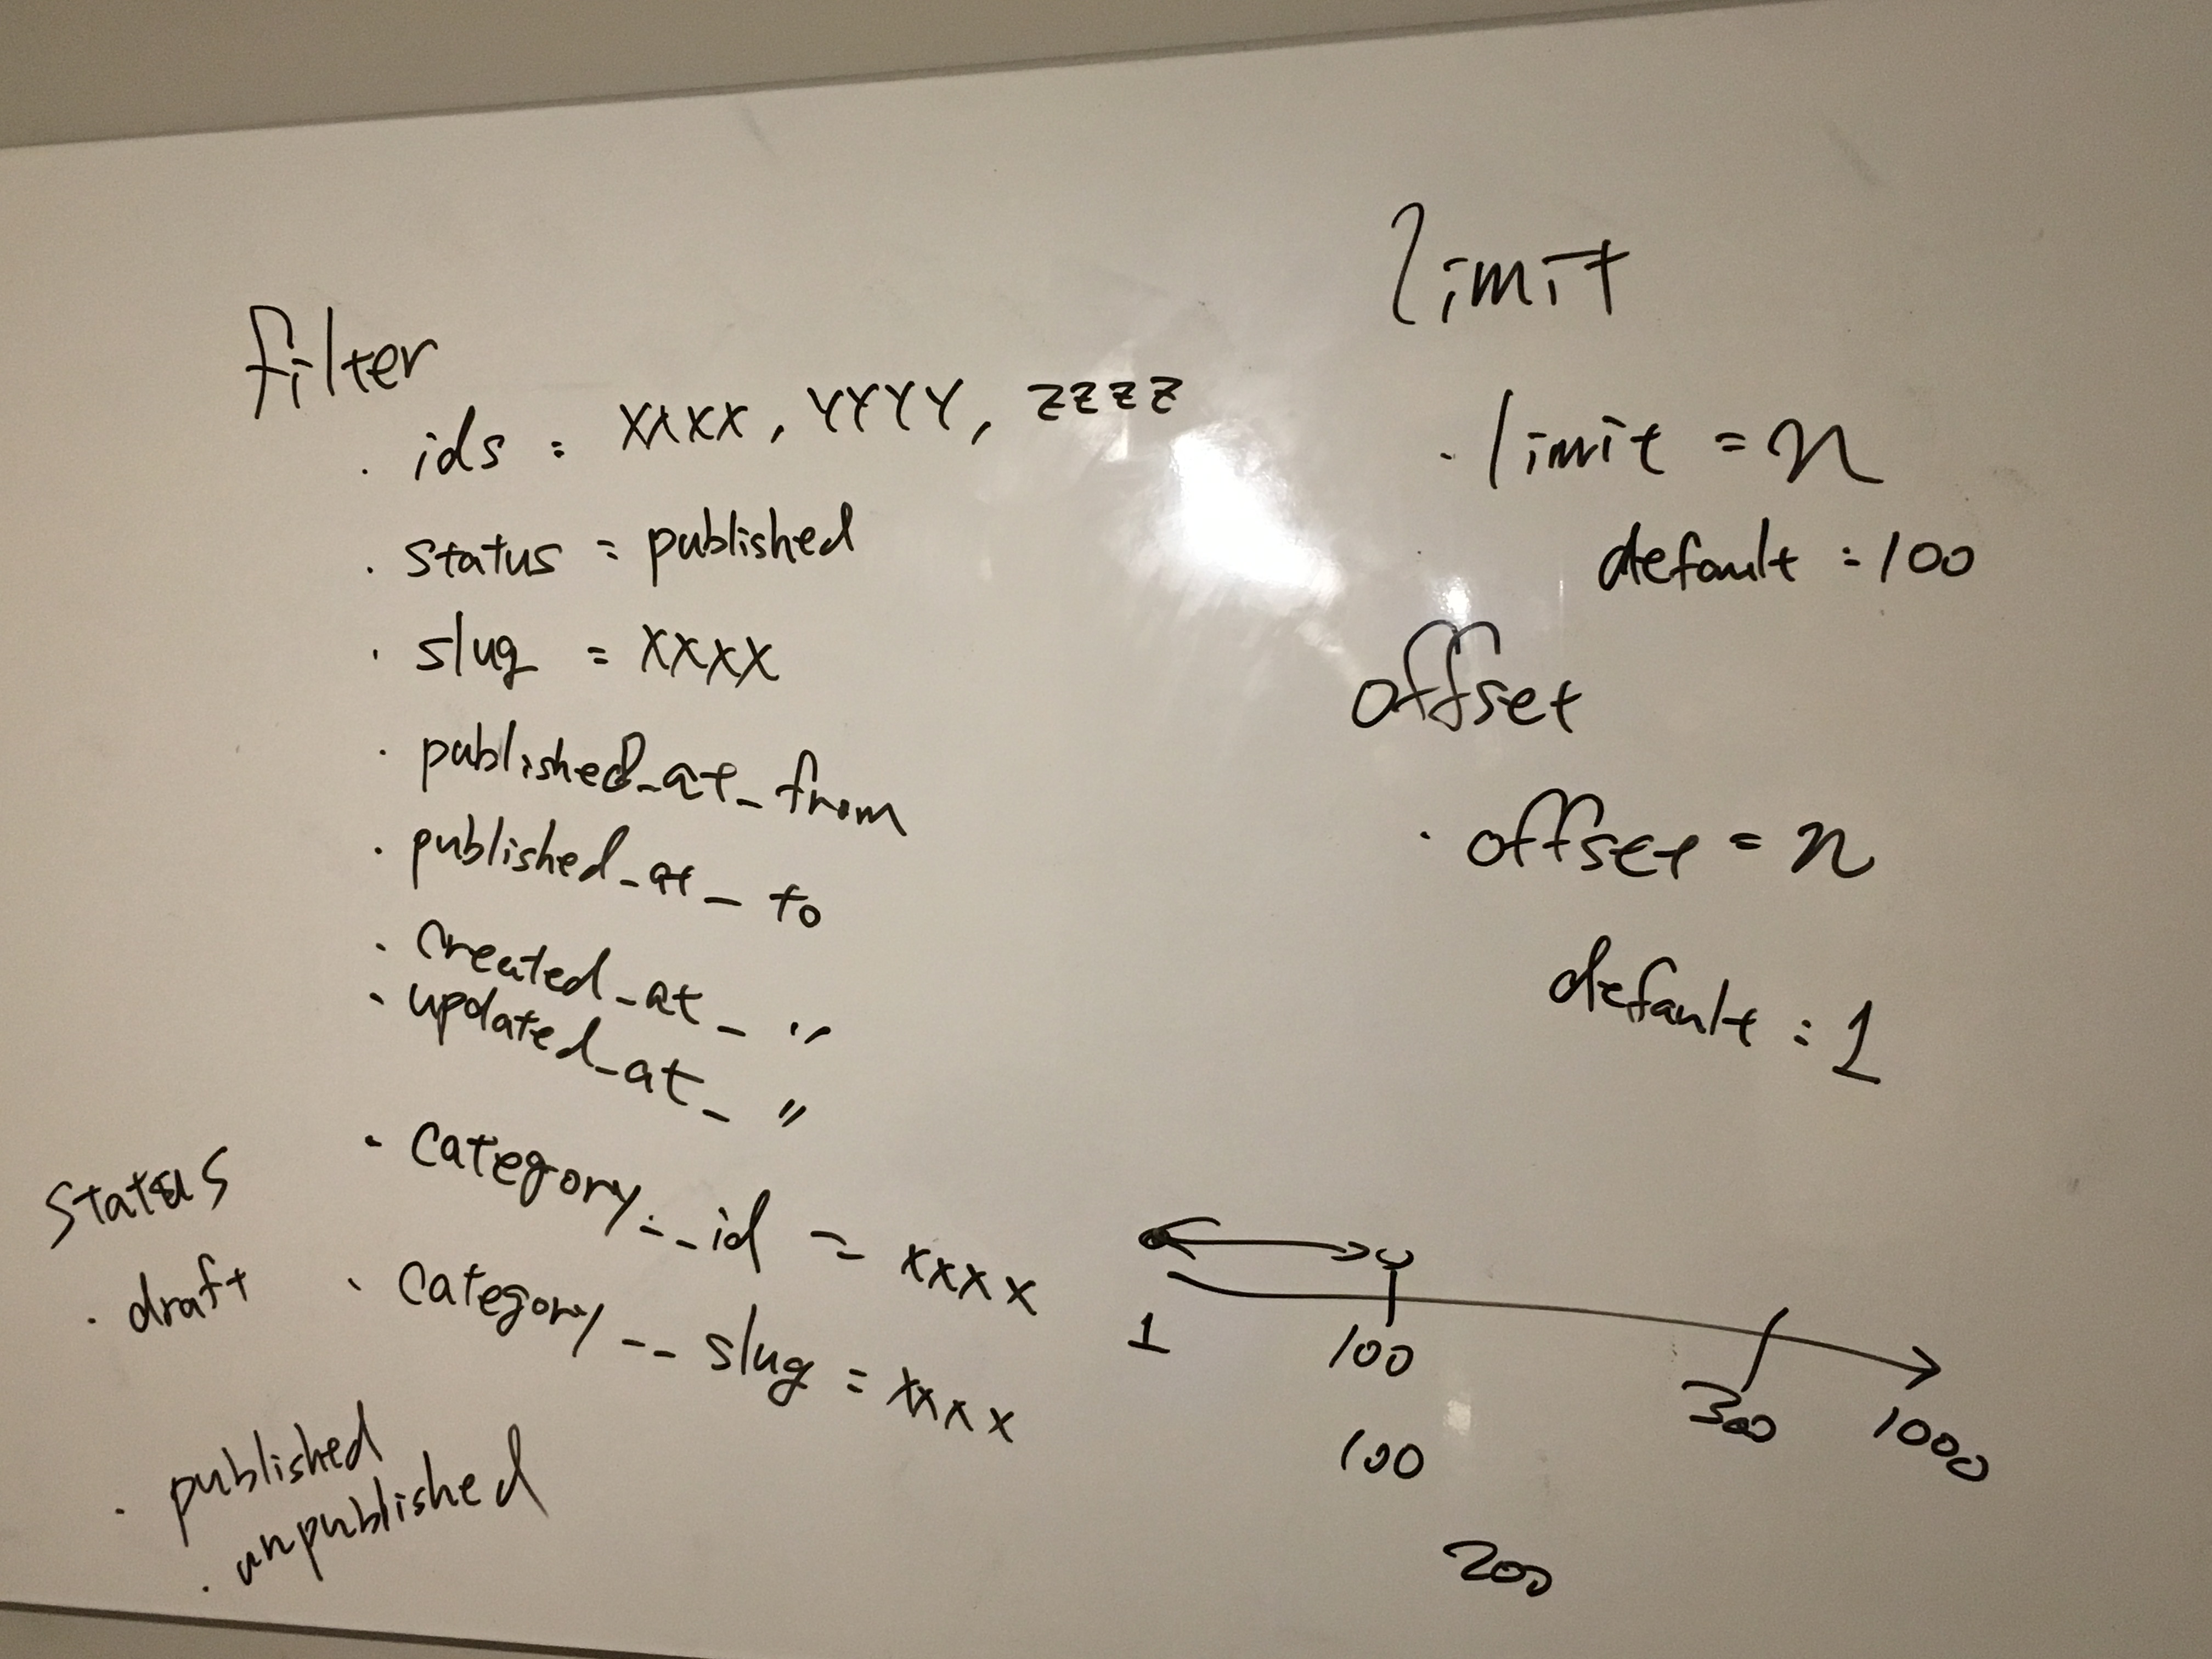 filter
· ids = xxxx, YYYY, zzzz
· status = published
· slug = xxxx
· published_at_from
· published_at_to
· created_at_ 〃
· updated_at_ 〃
· category__id = xxxx
· category__slug = xxxx
status
· draft
· published
· unpublished
limit
· limit = n
default : 100
offset
· offset = n
default : 1
1 100 300 1000
100
200